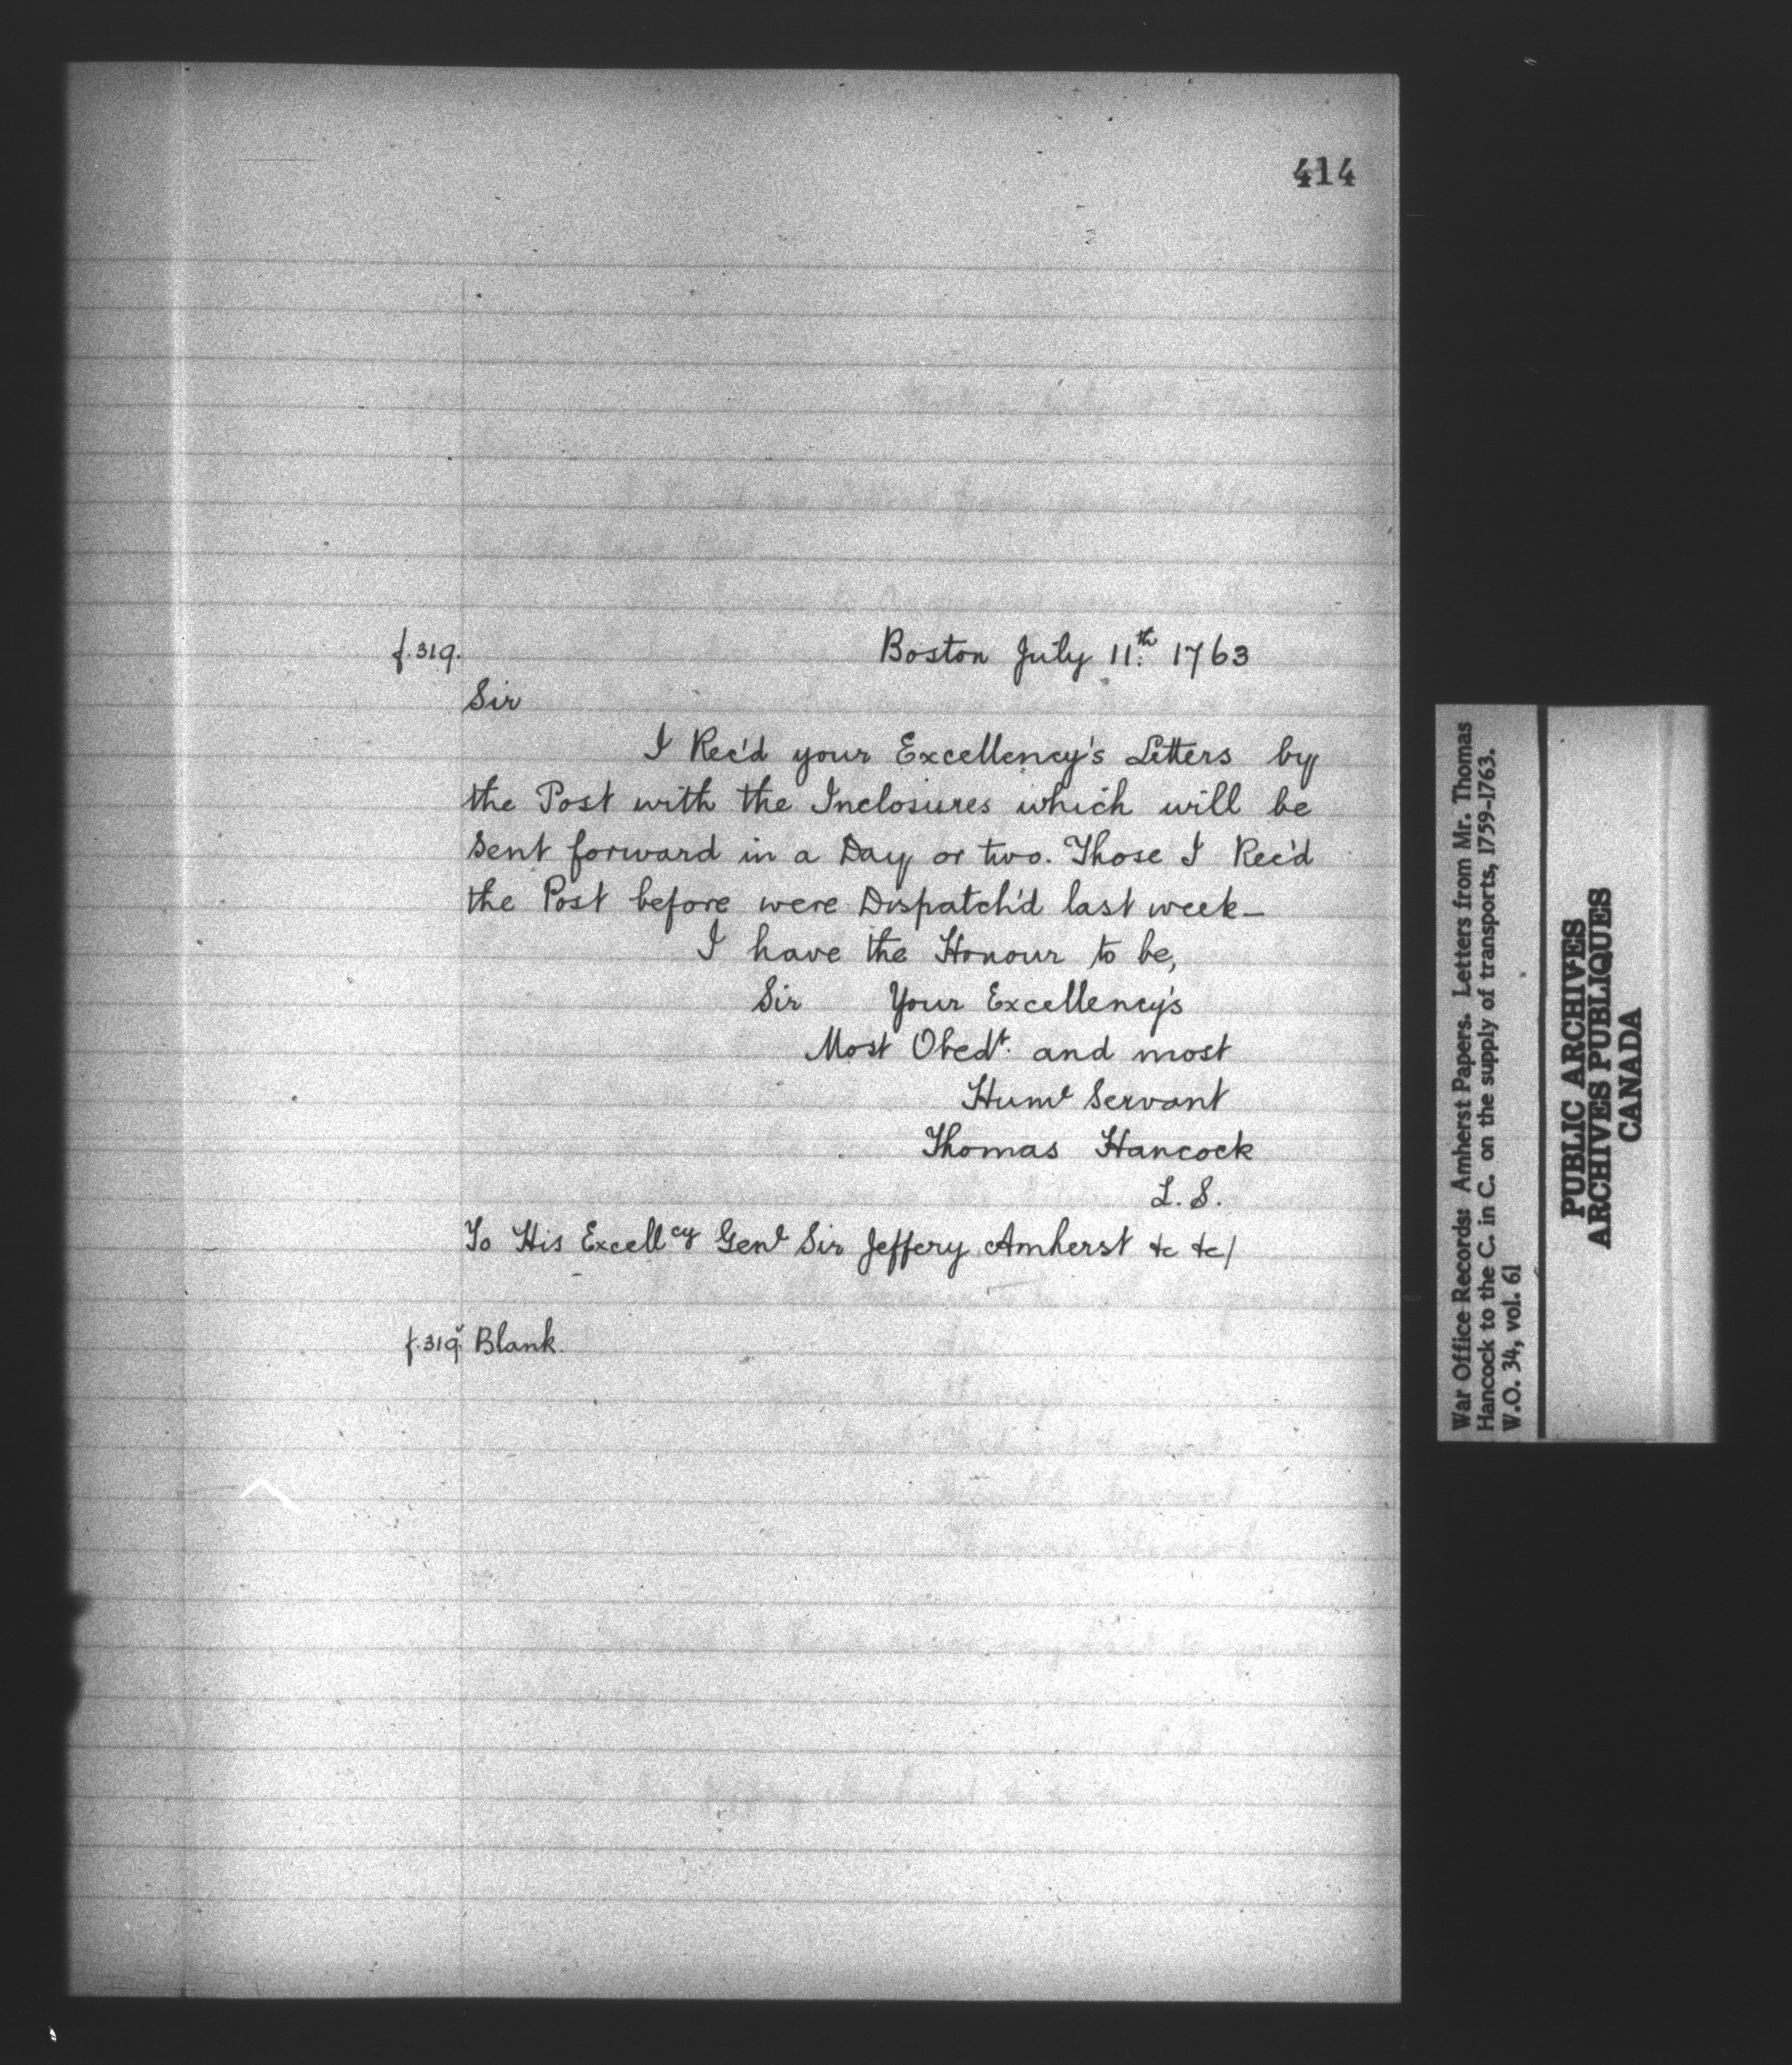 414
f.319. Boston July 11th 1763
Sir
I Rec'd your Excellency's Letters by
the Post with the Inclosures which will be
sent forward in a Day or two. Those I Rec'd
the Post before were Dispatch'd last week_
I have the Honour to be,
Sir Your Excellency's
Most Obedt. and most
Huml Servant
Thomas Hancock
L.S.
To His Excellcy Genl Sir Jeffery Amherst &c &c/
f.319v Blank.
War Office Records: Amherst Papers. Letters from Mr. Thomas
Hancock to the C. in C. on the supply of transports, 1759-1763.
W.O. 34, vol. 61
PUBLIC ARCHIVES
ARCHIVES PUBLIQUES
CANADA